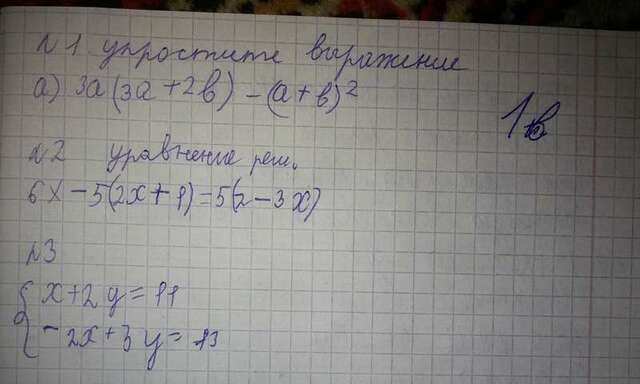 №1 упростите выражение
а) 3а(3а+2в)-(а+в)²
1в
№2 уравнение реш.
6x-5(2x+1)=5(2-3x)
№3
{x+2y=11
-2x+3y=13